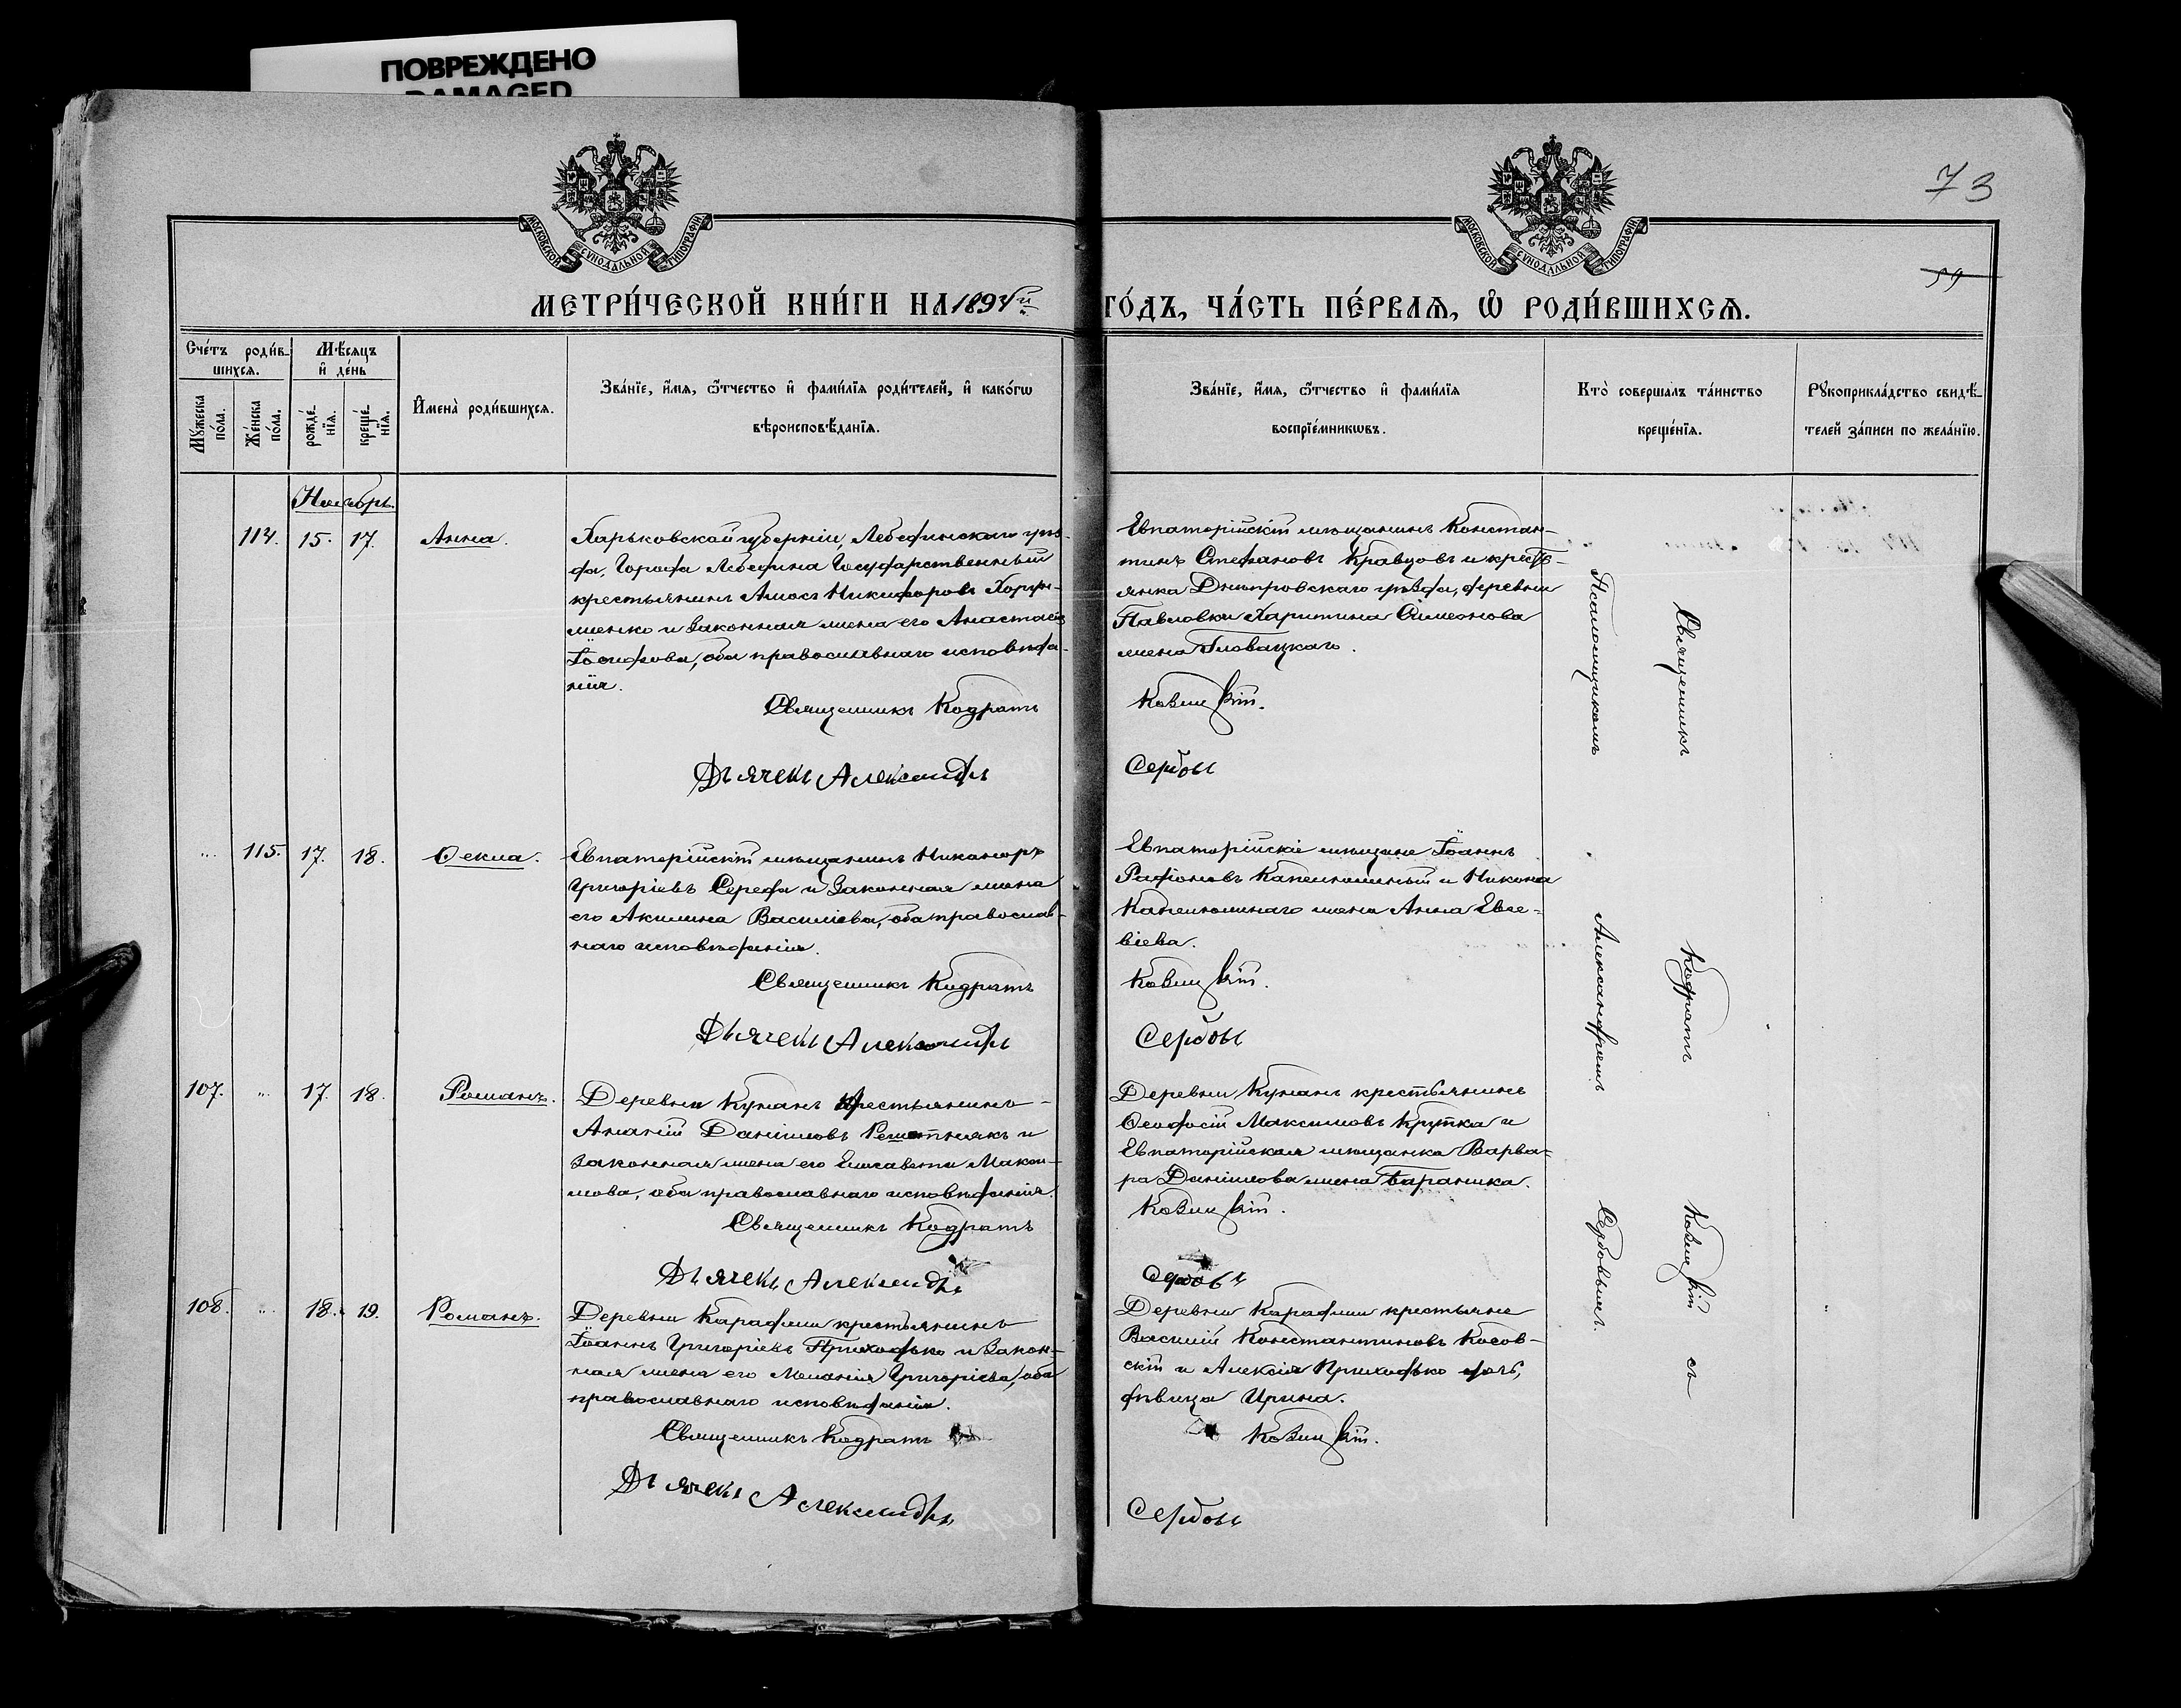 ПОВРЕЖДЕНО
DAMAGED
МОСКОВСКОЙ СѴНОДАЛЬНОЙ ТИПОГРАФІИ
МОСКОВСКОЙ СѴНОДАЛЬНОЙ ТИПОГРАФІИ
73
МЕТРИ́ЧЕСКОЙ КНИ́ГИ НА 1894й
ГО́ДЪ, ЧА́СТЬ ПЕ́РВАЯ, Ѡ РОДИ́ВШИХСЯ.
Сче́тъ роди́в-
шихся.
Мѣ́сяцъ
и де́нь
Му́жеска
по́ла.
Же́нска
по́ла.
рожде́-
нїя.
креще́-
нїя.
И҆мена̀ роди́вшихся.
Зва́нїе, и҆́мя, ѻ҆́тчество и҆ фами́лїя роди́телей, и҆ како́гѡ
вѣроисповѣ́данїя.
Зва́нїе, и҆́мя, ѻ҆́тчество и҆ фами́лїя
воспрїе́мникѡвъ.
Кто̀ соверша́лъ та́инство
креще́нїя.
Рꙋкоприкла́дство свидѣ́-
телей за́писи по жела́нїю.
Ноябрь.
114. 15. 17. Анна.
Харьковской губерніи, Лебединскаго уѣз-
да, Города Лебедина Государственный
крестьянинъ Амосъ Никифоровъ Хоруж-
женко и законная жена его Анастасія
Іосифова, оба православнаго исповѣда-
нія.
Священникъ Кодратъ
Дьячекъ Александръ
Евпаторійскій мѣщанинъ Констан-
тинъ Стефановъ Кравцовъ и крестья-
янка Днѣпровскаго уѣзда, деревни
Павловки Харитина Симеонова
жена Гловацкаго.
Сербовъ
115. 17. 18. Ѳекла.
Евпаторійскій мѣщанинъ Никаноръ
Григоріевъ Середа и законная жена
его Акилина Василіева, оба православ-
наго исповѣданія.
Священникъ Кодратъ
Дьячекъ Александръ
Евпаторійскіе мѣщане Іоаннъ
Родіоновъ Капелюшный и Никона
Капелюшнаго жена Анна Евсе-
віева.
Сербовъ
107. „ 17. 18. Романъ.
Деревни Кунанъ крестьянинъ
Ананій Даніиловъ Решетнякъ и
законная жена его Елисавета Макси-
мова, оба православнаго исповѣданія.
Священникъ Кодратъ
Дьячекъ Александръ
Деревни Кунанъ крестьянинъ
Ѳеодосій Максимовъ Крутка и
Евпаторійская мѣщанка Варва-
ра Даніилова жена Бараника.
Сербовъ
108. „ 18. 19. Романъ.
Деревни Караджи крестьянинъ
Іоаннъ Григоріевъ Приходько и закон-
ная жена его Меланія Григоріева, оба
православнаго исповѣданія.
Священникъ Кодратъ
Дьячекъ Александръ
Деревни Караджи крестьяне
Василій Константиновъ Косов-
скій и Алексія Приходько дочь,
дѣвица Ирина.
Сербовъ
Священникъ Кодратъ съ
Псаломщикомъ Александромъ Сербовымъ.